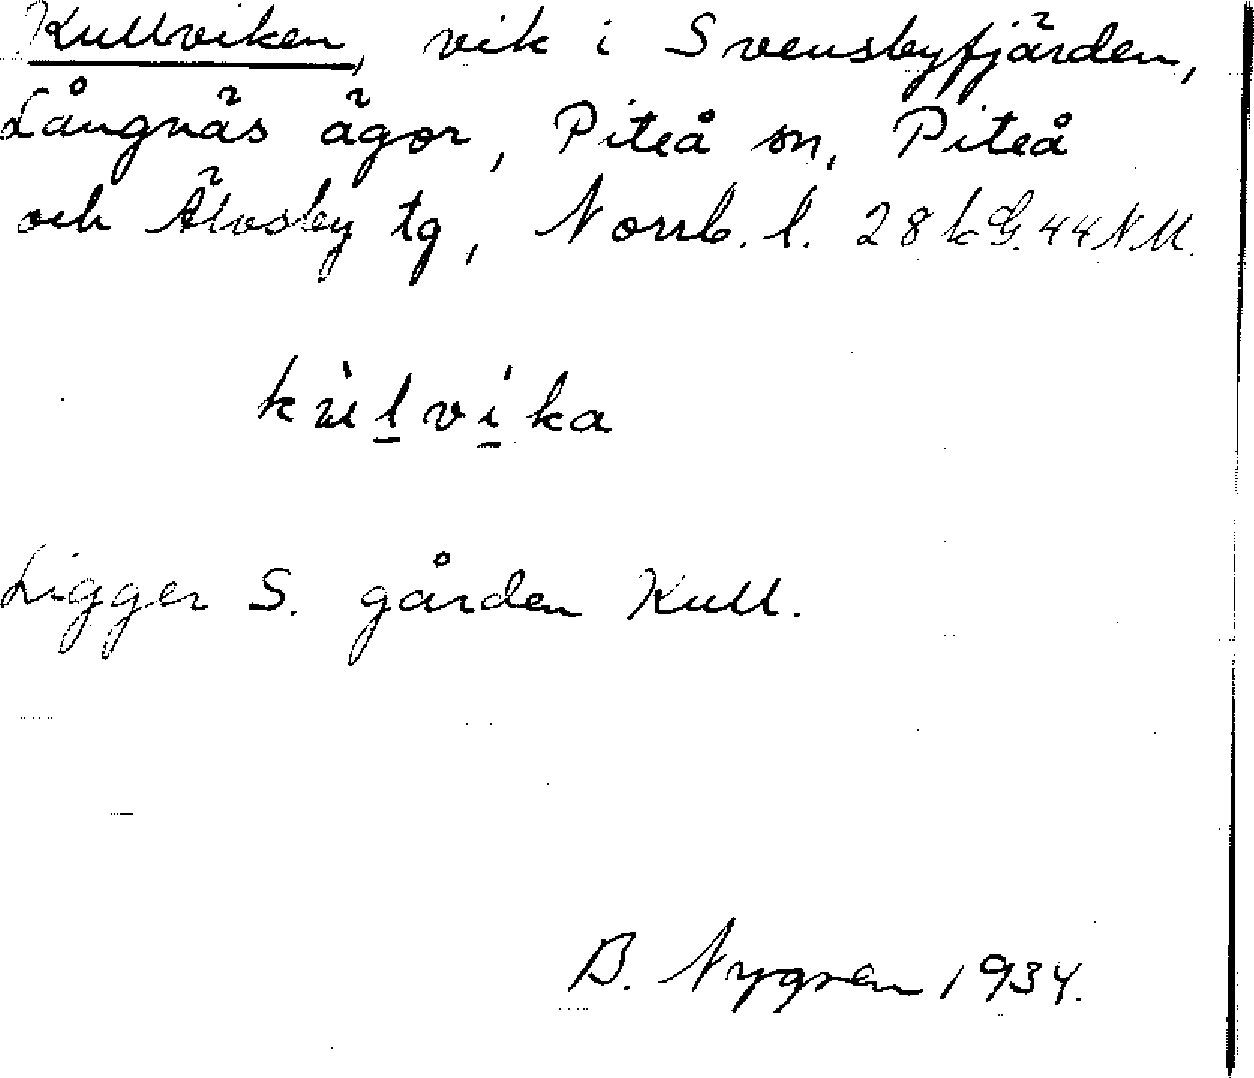 Kullviken, vik i Svensbyfjärden,
Långnäs ägor, Piteå sn, Piteå
och Älvsby tg, Norrb. l. 28 k G. 44 N M.
kùlvíka
Ligger S. gården Kull.
B. Nygren 1934.